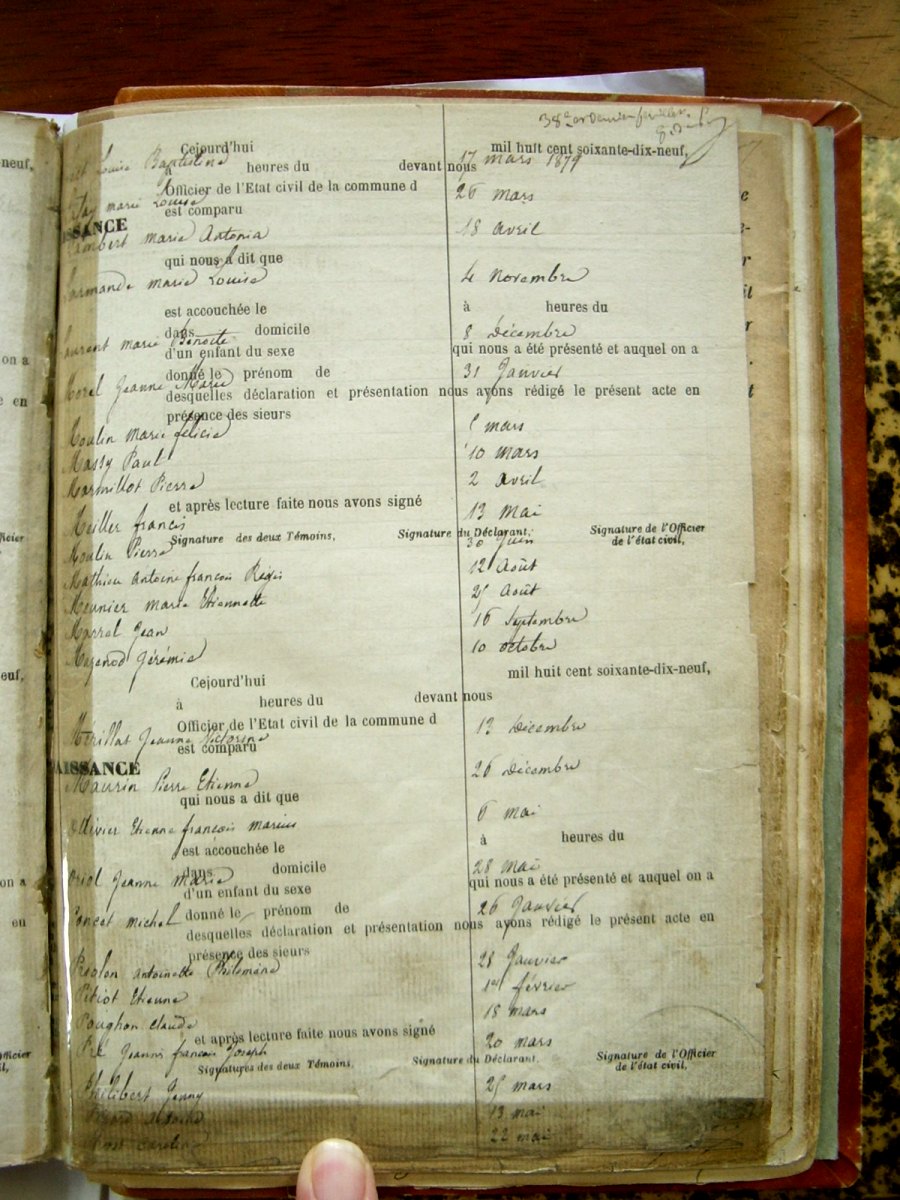 38e et dernier feuillet
neuf,
Cejourd'hui mil huit cent soixante-dix-neuf,
Louise Baptistine 17 mars 1879
à heures du devant nous
Officier de l'Etat civil de la commune d
marie Louise 26 mars
est comparu
ISSANCE
Lambert marie Antonia 18 avril
qui nous a dit que
marie Louise 4 Novembre
est accouchée le à heures du
dans domicile
Laurent marie Benoite 8 Décembre
d'un enfant du sexe qui nous a été présenté et auquel on a
on a
donné le prénom de
Morel Jeanne Marie 31 Janvier
desquelles déclaration et présentation nous avons rédigé le présent acte en
en
présence des sieurs
Moulin marie félicie mars
Massy Paul 10 mars
Marmillot Pierre 2 avril
et après lecture faite nous avons signé
Meiller francis 13 Mai
Signature des deux Témoins, Signature du Déclarant, Signature de l'Officier
de l'état civil,
fficier
il,
Moulin Pierre 30 Juin
Mathieu Antoine françois Régis 12 Août
Meunier marie Etiennette 25 Août
Marrel Jean 16 Septembre
Mazenod Jérémie 10 octobre
euf,
Cejourd'hui mil huit cent soixante-dix-neuf,
à heures du devant nous
Officier de l'Etat civil de la commune d
Mérillat Jeanne Victorine 13 Décembre
est comparu
AISSANCE
Maurin Pierre Etienne 26 Décembre
qui nous a dit que
Ollivier Etienne françois marius 6 mai
est accouchée le à heures du
dans domicile
Oriol Jeanne marie 28 mai
on a
d'un enfant du sexe qui nous a été présenté et auquel on a
donné le prénom de
Poncet michel 26 Janvier
en
desquelles déclaration et présentation nous avons rédigé le présent acte en
présence des sieurs
Antoinette Philomène 28 Janvier
Pitiot Etienne 1er février
Poughon Claude 18 mars
et après lecture faite nous avons signé
Pré Jeannis françois Joseph 20 mars
Signatures des deux Témoins, Signature du Déclarant, Signature de l'Officier
de l'état civil,
Philibert Jenny 25 mars
13 mai
22 mai